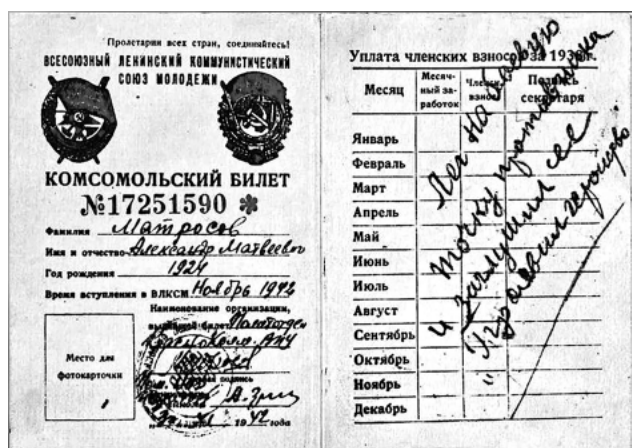 Пролетарии всех стран, соединяйтесь!
ВСЕСОЮЗНЫЙ ЛЕНИНСКИЙ КОММУНИСТИЧЕСКИЙ
СОЮЗ МОЛОДЕЖИ
КОМСОМОЛЬСКИЙ БИЛЕТ
№17251590 *
Фамилия Матросов
Имя и отчество Александр Матвеевич
Год рождения 1924
Время вступления в ВЛКСМ Ноябрь 1942
Наименование организации,
выдавшей билет
Место для
фотокарточки
подпись
1942 года
Уплата членских взносов за 193 г.
Месяц
Месяч-
ный за-
работок
Членск.
взнос
Подпись
секретаря
Январь
Февраль
Март
Апрель
Май
Июнь
Июль
Август
Сентябрь
Октябрь
Ноябрь
Декабрь
Лег на боевую
точку противника
и заглушил ее
Проявил геройство